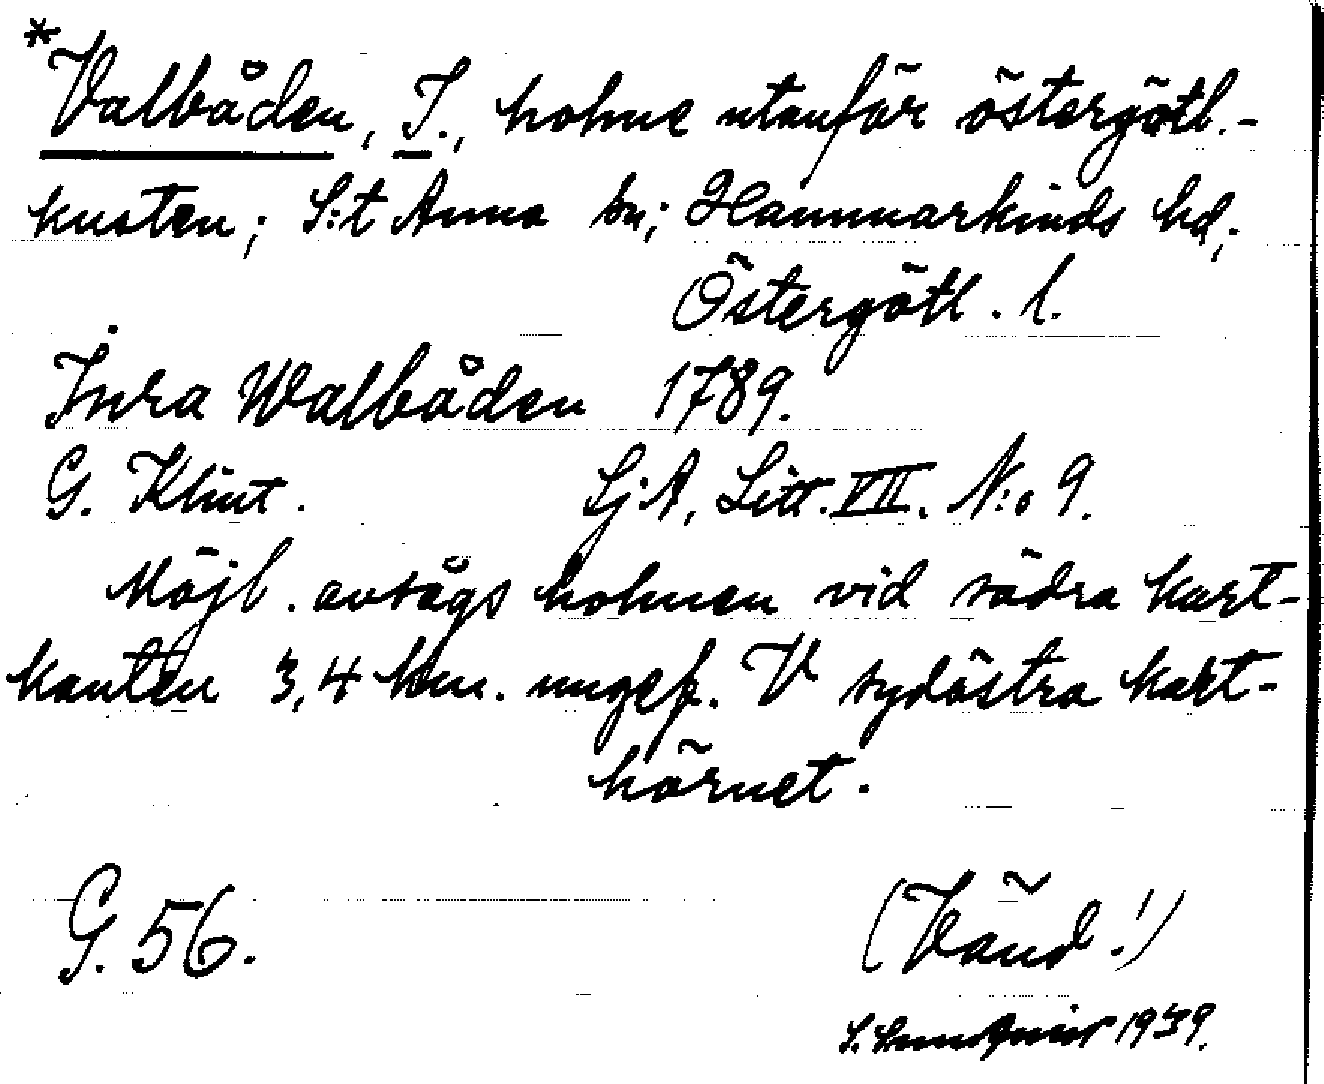 *Valbåden, I., holme utanför östergötl.-
kusten; S:t Anna sn; Hammarkinds hd;
Östergötl. l.
Inra Walbåden 1789.
G. Klint. Sj.A, Litt. VII. N:o 9.
Möjl. avsågs holmen vid södra kart-
kanten 3,4 km. ungef. V sydöstra kart-
hörnet.
G. 56.
(Vänd!)
S. 1939.